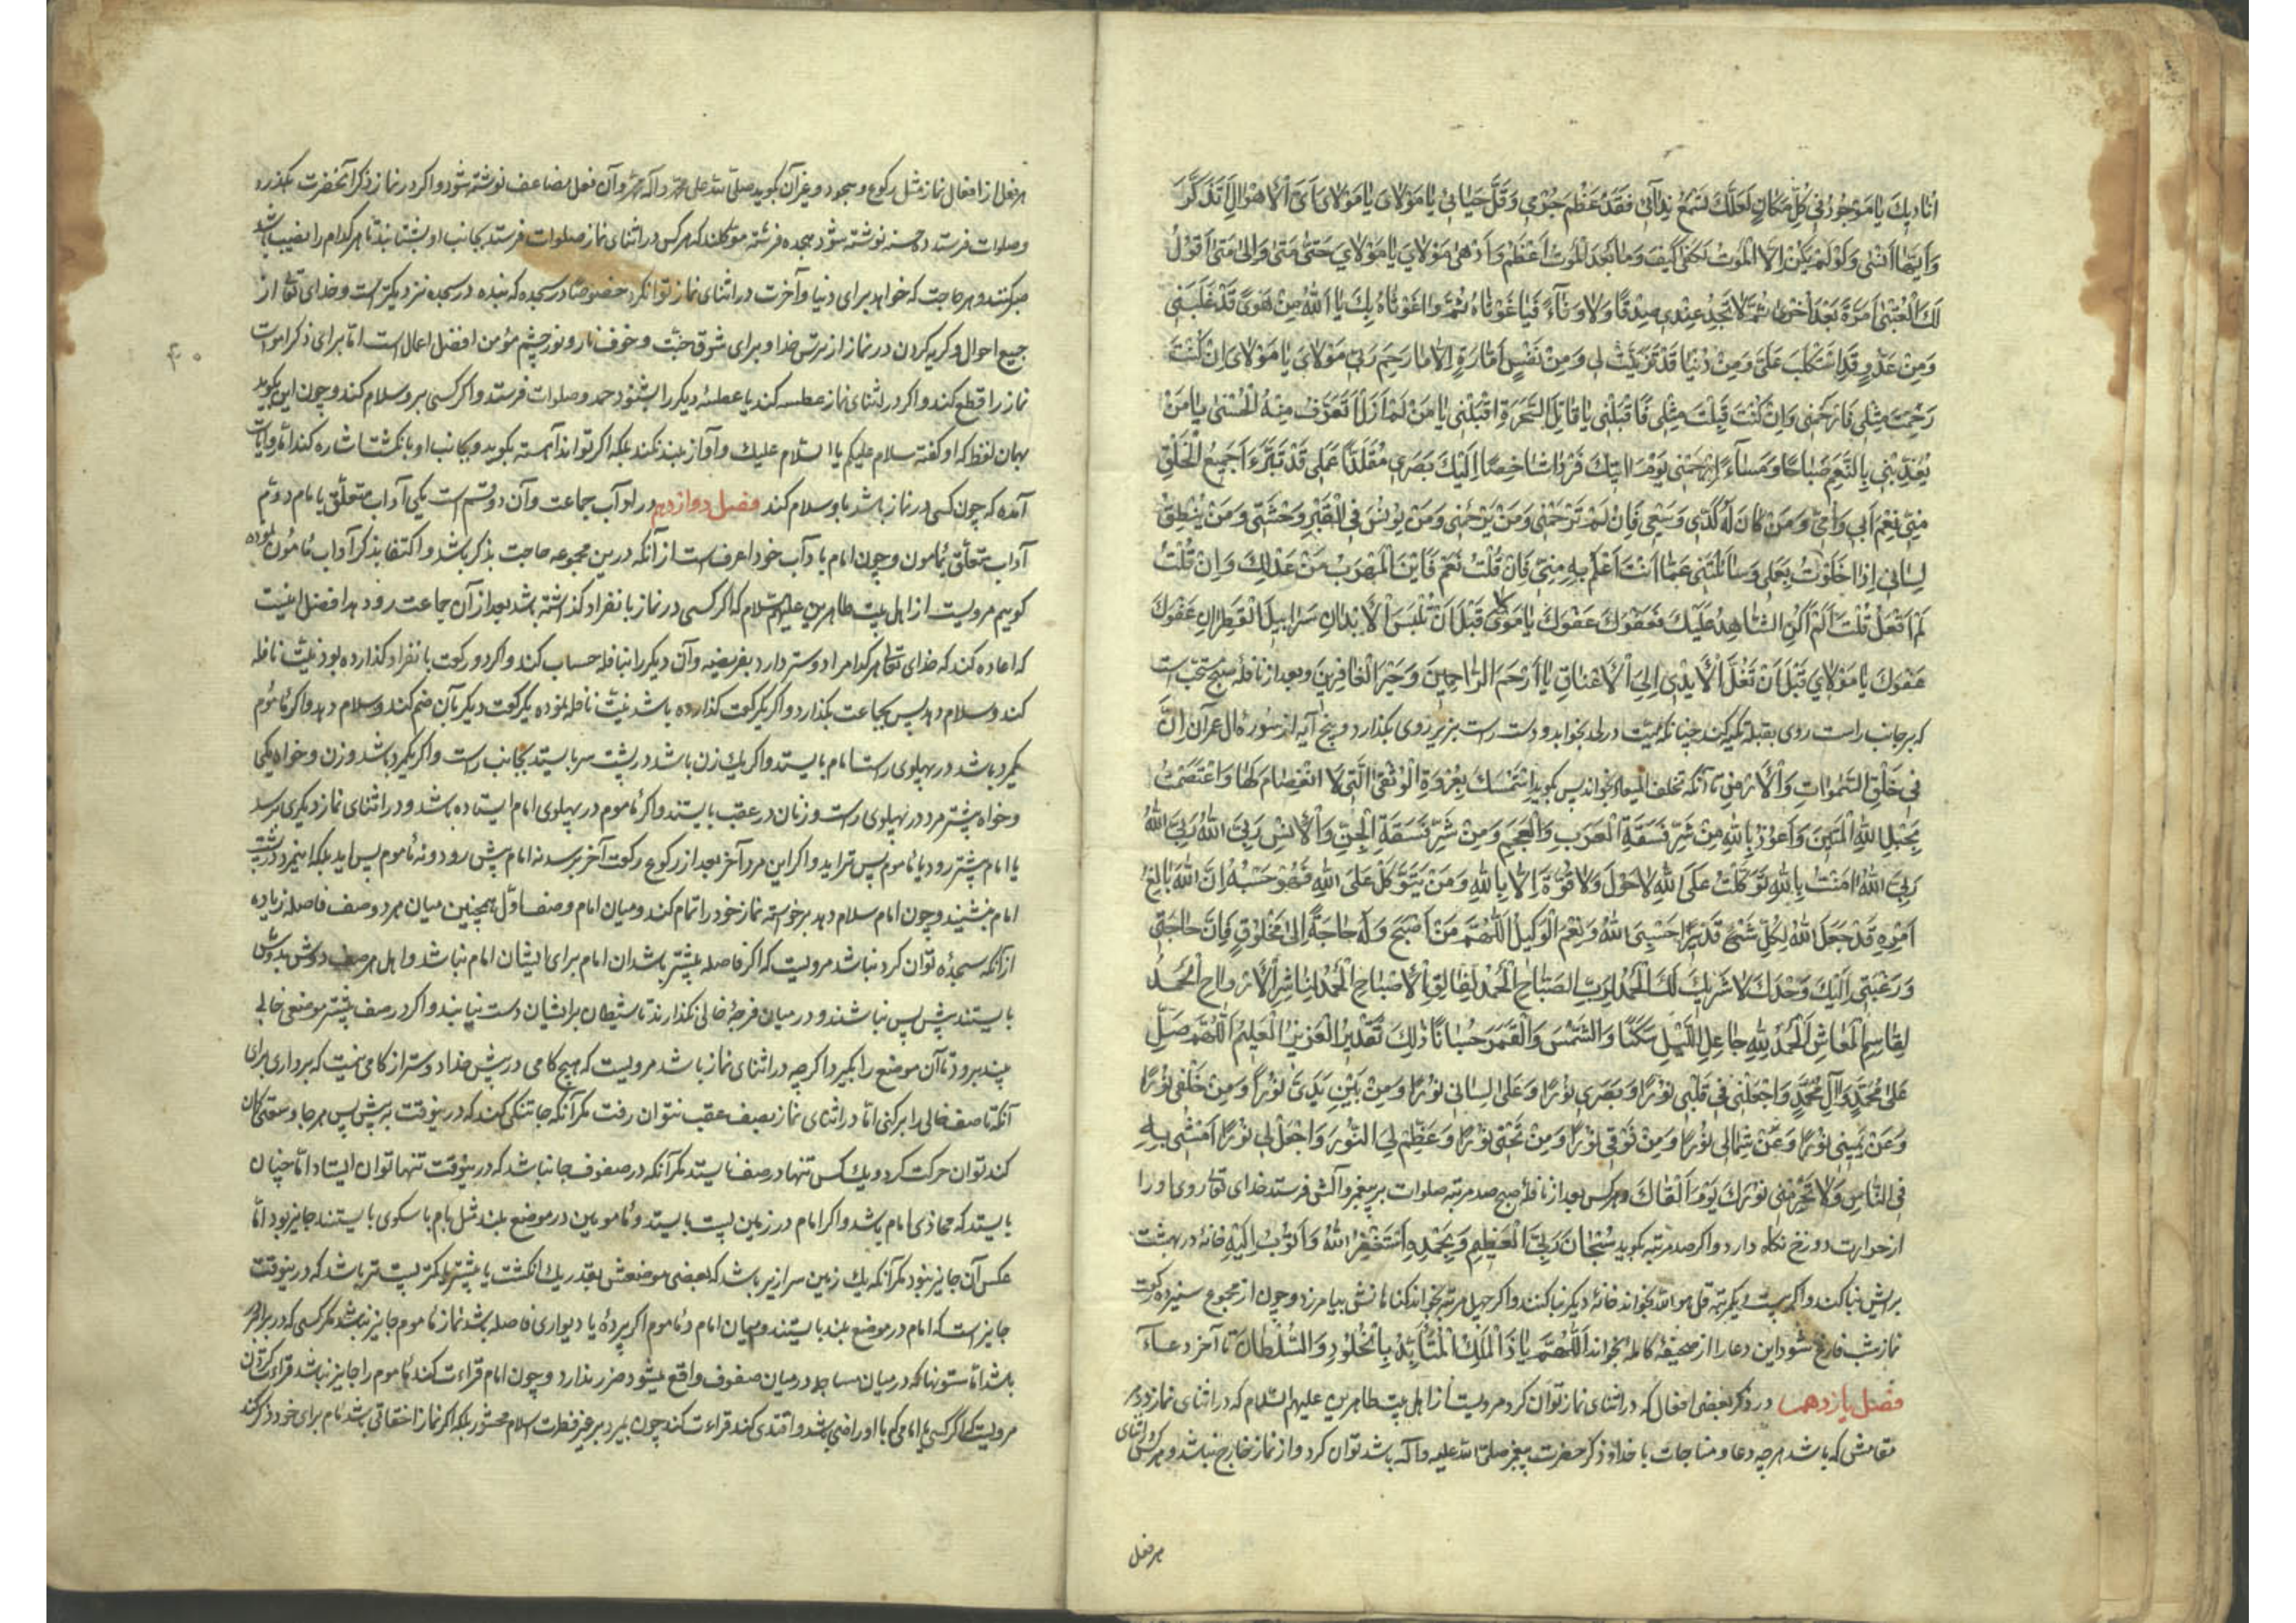 اُنَادِيكَ يَا مَوْجُودُ فِي كُلِّ مَكَانٍ لَعَلَّكَ تَسْمَعُ نِدَائِي فَقَدْ عَظُمَ جُرْمِي وَقَلَّ حَيَائِي يَا مَوْلَايَ يَا مَوْلَايَ اَيَّ الْاَهْوَالِ اَتَذَكَّرُ
وَاَيَّهَا اَنْسَى وَلَوْ لَمْ يَكُنْ اِلَّا الْمَوْتُ لَكَفَى كَيْفَ وَمَا بَعْدَ الْمَوْتِ اَعْظَمُ وَاَدْهَى مَوْلَايَ يَا مَوْلَايَ حَتَّى مَتَى وَاِلَى مَتَى اَقُولُ
لَكَ الْعُتْبَى مَرَّةً بَعْدَ اُخْرَى ثُمَّ لَا تَجِدُ عِنْدِي صِدْقًا وَلَا وَفَاءً فَيَا غَوْثَاهُ ثُمَّ وَا غَوْثَاهُ بِكَ يَا اَللّٰهُ مِنْ هَوًى قَدْ غَلَبَنِي
وَمِنْ عَدُوٍّ قَدِ اسْتَكْلَبَ عَلَيَّ وَمِنْ دُنْيَا قَدْ تَزَيَّنَتْ لِي وَمِنْ نَفْسٍ اَمَّارَةٍ اِلَّا مَا رَحِمَ رَبِّي مَوْلَايَ يَا مَوْلَايَ اِنْ كُنْتَ
رَحِمْتَ مِثْلِي فَارْحَمْنِي وَاِنْ كُنْتَ قَبِلْتَ مِثْلِي فَاقْبَلْنِي يَا قَابِلَ السَّحَرَةِ اقْبَلْنِي يَا مَنْ لَمْ اَزَلْ اَتَعَرَّفُ مِنْهُ الْحُسْنَى يَا مَنْ
يُغَذِّينِي بِالنِّعَمِ صَبَاحًا وَمَسَاءً اِرْحَمْنِي يَوْمَ اٰتِيكَ فَرْدًا شَاخِصًا اِلَيْكَ بَصَرِي مُقَلَّدًا عَمَلِي قَدْ تَبَرَّءَ جَمِيعُ الْخَلْقِ
مِنِّي نَعَمْ اَبِي وَاُمِّي وَمَنْ كَانَ لَهُ كَدِّي وَسَعْيِي فَاِنْ لَمْ تَرْحَمْنِي وَمَنْ يَرْحَمُنِي وَمَنْ يُونِسُ فِي الْقَبْرِ وَحْشَتِي وَمَنْ يُنْطِقُ
لِسَانِي اِذَا خَلَوْتُ بِعَمَلِي وَسَاَلْتَنِي عَمَّا اَنْتَ اَعْلَمُ بِهِ مِنِّي فَاِنْ قُلْتُ نَعَمْ فَاَيْنَ الْمَهْرَبُ مِنْ عَدْلِكَ وَاِنْ قُلْتُ
لَمْ اَفْعَلْ قُلْتَ اَلَمْ اَكُنِ الشَّاهِدَ عَلَيْكَ فَعَفْوَكَ عَفْوَكَ يَا مَوْلَايَ قَبْلَ اَنْ تُلْبَسَ الْاَبْدَانُ سَرَابِيلَ الْقَطِرَانِ عَفْوَكَ
عَفْوَكَ يَا مَوْلَايَ قَبْلَ اَنْ تُغَلَّ الْاَيْدِي اِلَى الْاَعْنَاقِ يَا اَرْحَمَ الرَّاحِمِينَ وَخَيْرَ الْغَافِرِينَ وبعد از نافلهٔ صبح مستحب است
که بر جانب راست روی بقبله تکیه کند چنانکه میت در لحد بخوابد و دست راست بزیر روی بگذارد و پنج آیه از سورهٔ آل عمران اِنَّ
فِي خَلْقِ السَّمٰوَاتِ وَالْاَرْضِ تا آنکه تخلف المیعاد بخواند پس بگوید اِسْتَمْسَكْتُ بِعُرْوَةِ الْوُثْقَى الَّتِي لَا انْفِصَامَ لَهَا وَاعْتَصَمْتُ
بِحَبْلِ اللّٰهِ الْمَتِينِ وَاَعُوذُ بِاللّٰهِ مِنْ شَرِّ فَسَقَةِ الْعَرَبِ وَالْعَجَمِ وَمِنْ شَرِّ فَسَقَةِ الْجِنِّ وَالْاِنْسِ رَبِّيَ اللّٰهُ رَبِّيَ اللّٰهُ
رَبِّيَ اللّٰهُ اٰمَنْتُ بِاللّٰهِ تَوَكَّلْتُ عَلَى اللّٰهِ لَا حَوْلَ وَلَا قُوَّةَ اِلَّا بِاللّٰهِ وَمَنْ يَتَوَكَّلْ عَلَى اللّٰهِ فَهُوَ حَسْبُهُ اِنَّ اللّٰهَ بَالِغُ
اَمْرِهِ قَدْ جَعَلَ اللّٰهُ لِكُلِّ شَيْءٍ قَدْرًا حَسْبِيَ اللّٰهُ وَنِعْمَ الْوَكِيلُ اَللّٰهُمَّ مَنْ اَصْبَحَ وَلَهُ حَاجَةٌ اِلَى مَخْلُوقٍ فَاِنَّ حَاجَتِي
وَرَغْبَتِي اِلَيْكَ وَحْدَكَ لَا شَرِيكَ لَكَ الْحَمْدُ لِرَبِّ الصَّبَاحِ الْحَمْدُ لِفَالِقِ الْاِصْبَاحِ الْحَمْدُ لِنَاشِرِ الْاَرْوَاحِ الْحَمْدُ
لِقَاسِمِ الْمَعَاشِ الْحَمْدُ لِلّٰهِ جَاعِلِ اللَّيْلِ سَكَنًا وَالشَّمْسَ وَالْقَمَرَ حُسْبَانًا ذٰلِكَ تَقْدِيرُ الْعَزِيزِ الْعَلِيمِ اَللّٰهُمَّ صَلِّ
عَلَى مُحَمَّدٍ وَاٰلِ مُحَمَّدٍ وَاجْعَلْ فِي قَلْبِي نُورًا وَبَصَرِي نُورًا وَعَلَى لِسَانِي نُورًا وَمِنْ بَيْنِ يَدَيَّ نُورًا وَمِنْ خَلْفِي نُورًا
وَعَنْ يَمِينِي نُورًا وَعَنْ شِمَالِي نُورًا وَمِنْ فَوْقِي نُورًا وَمِنْ تَحْتِي نُورًا وَعَظِّمْ لِيَ النُّورَ وَاجْعَلْ لِي نُورًا اَمْشِي بِهِ
فِي النَّاسِ وَلَا تَحْرِمْنِي نُورَكَ يَوْمَ اَلْقَاكَ و هرکس بعد از نافلهٔ صبح صد مرتبه صلوات بر پیغمبر و آلش فرستد خدای تعالی روی او را
از حرارت دوزخ نگاه دارد و اگر صد مرتبه بگوید سُبْحَانَ رَبِّيَ الْعَظِيمِ وَبِحَمْدِهِ اَسْتَغْفِرُ اللّٰهَ وَاَتُوبُ اِلَيْهِ خانهٔ در بهشت
برایش بنا کند و اگر بیست و یکمرتبه قل هو الله بخواند خانهٔ دیگر بنا کنند و اگر چهل مرتبه بخواند گناهانش بیامرزد و چون از مجموع سیزده رکعت
نماز شب فارغ شود این دعا را از صحیفهٔ کامله بخواند اَللّٰهُمَّ يَا ذَا الْمُلْكِ الْمُتَاَبِّدِ بِالْخُلُودِ وَالسُّلْطَانِ تا آخر دعا
فصل یازدهم در ذکر بعضی افعال که در اثنای نماز توان کرد مرویست از اهل بیت طاهرین علیهم السلام که در اثنای نماز در هر
مقامش که باشد هر چه دعا و مناجات با خدا و ذکر حضرت پیغمبر صلی الله علیه و آله باشد توان کرد و از نماز خارج نباشد و هرکس در اثنای
هر فعل
هر فعل از افعال نماز مثل رکوع و سجود و غیر آن بگوید صلی الله علی محمد و آله محمد و آن فعل مضاعف نوشته شود و اگر در نماز ذکر آنحضرت بگذرد
و صلوات فرستد ده حسنه نوشته شود و هجده فرشته موکلند که هرکس در اثنای نماز صلوات فرستد بجانب او بشتابند تا هر کدام را نصیب باشد
صبر کنند و هر حاجت که خواهد برای دنیا و آخرت در اثنای نماز توان کرد خصوصا در سجده که بنده در سجده نزدیکتر است و خدای تعالی از
جمیع احوال و گریه کردن در نماز از ترس خدا و برای شوق جنت و خوف نار و نور چشم مؤمن افضل اعمال است اما برای ذکر اموات
نماز را قطع کند و اگر در اثنای نماز عطسه کند یا عطسهٔ دیگر را بشنود حمد و صلوات فرستد و اگر کسی بر او سلام کند و چون این بگوید
بهمان لفظ که او گفته سلام علیکم یا السلام علیک و آواز بلند نکند بلکه اگر تواند آهسته بگوید و بجانب او بانگشت اشاره کند اما روایت
آمده که چون کسی در نماز باشد باو سلام کند فصل دوازدهم در آداب جماعت و آن دو قسم است یکی آداب متعلق بامام دویم
آداب متعلق بمأموم و چون امام بآداب خود اعرف است از آنکه درین مجموعه حاجت بذکر باشد و اکتفا بذکر آداب مأموم نموده
گوییم مرویست از اهل بیت طاهرین علیهم السلام که اگر کسی در نماز بانفراد گذاشته باشد بعد از آن جماعت رود هد افضل اینست
که اعاده کند که خدای تعالی هر کدام را دوستر دارد بفریضه و آن دیگر را بنافله حساب کند و اگر دو رکعت بانفراد گذارده بود نیت نافله
کند و سلام دهد پس بجماعت بگذارد و اگر یکرکعت گذارده باشد نیت نافله نموده یکرکعت دیگر بآن ضم کند و سلام دهد و اگر مأموم
یکمرد باشد در پهلوی راست امام بایستد و اگر یک زن باشد در پشت سر بایستد بجانب راست و اگر یکمرد باشد و زن و خواه یکی
و خواه بیشتر مرد در پهلوی راست و زنان در عقب بایستند و اگر مأموم در پهلوی امام ایستاده باشد و در اثنای نماز دیگری برسد
یا امام پیشتر رود یا مأموم پس تر آید و اگر این مرد آخر بعد از رکوع رکعت آخر برسد نه امام پیش رود و نه مأموم پس آید بلکه اینمرد در پشت
امام بنشیند و چون امام سلام دهد برخواسته نماز خود را تمام کند و میان امام و صف اول همچنین میان هر دو صف فاصله زیاده
از آنکه سجده توان کرد نباشد مرویست که اگر فاصله بیشتر باشد آن امام برای ایشان امام نباشد و اهل هر صف دوش بدوش
بایستند پیش پس نباشند و در میان فرجهٔ خالی نگذارند تا شیطان بر ایشان دست نیابد و اگر در صف پیشتر موضعی خالی
بیند برود تا آن موضع را بگیرد اگر چه در اثنای نماز باشد مرویست که هیچ گامی در پیش خدا دوستر از گامی نیست که برداری برای
آنکه تا صف خالی را پر کنی اما در اثنای نماز بصف عقب نتوان رفت مگر آنکه جا تنگی کند که درینوقت به پیش پس هر جا وسعتی کان
کند توان حرکت کرد و یک کس تنها در صف نایستد مگر آنکه در صفوف جا نباشد که درینوقت تنها توان ایستاد اما چنان
بایستد که محاذی امام باشد و اگر امام در زمین پست بایستد و مأمومین در موضع بلند مثل بام یا سکوی بایستند جایز بود اما
عکس آن جایز نبود مگر آنکه یک زمین سرازیر باشد که بعضی موضعش بقدر یک انگشت یا بیشتر یا کمتر پست تر باشد که درینوقت
جایز است که امام در موضع بلند بایستد و میان امام و مأموم اگر پردهٔ یا دیواری فاصله باشد نماز مأموم جایز نباشد مگر کسی که در برابر در
باشد اما ستونها که در میان مساجد در میان صفوف واقع میشود ضرر ندارد و چون امام قراءت کند مأموم را جایز نباشد قراءت کردن
مرویست که اگر کسی با امامی که باو راضی باشد و اقتدی کند قراءت کند چون بمیرد بر غیر فطرت اسلام محشور بلکه اگر نماز اخفاتی باشد امام برای خود ذکر کند